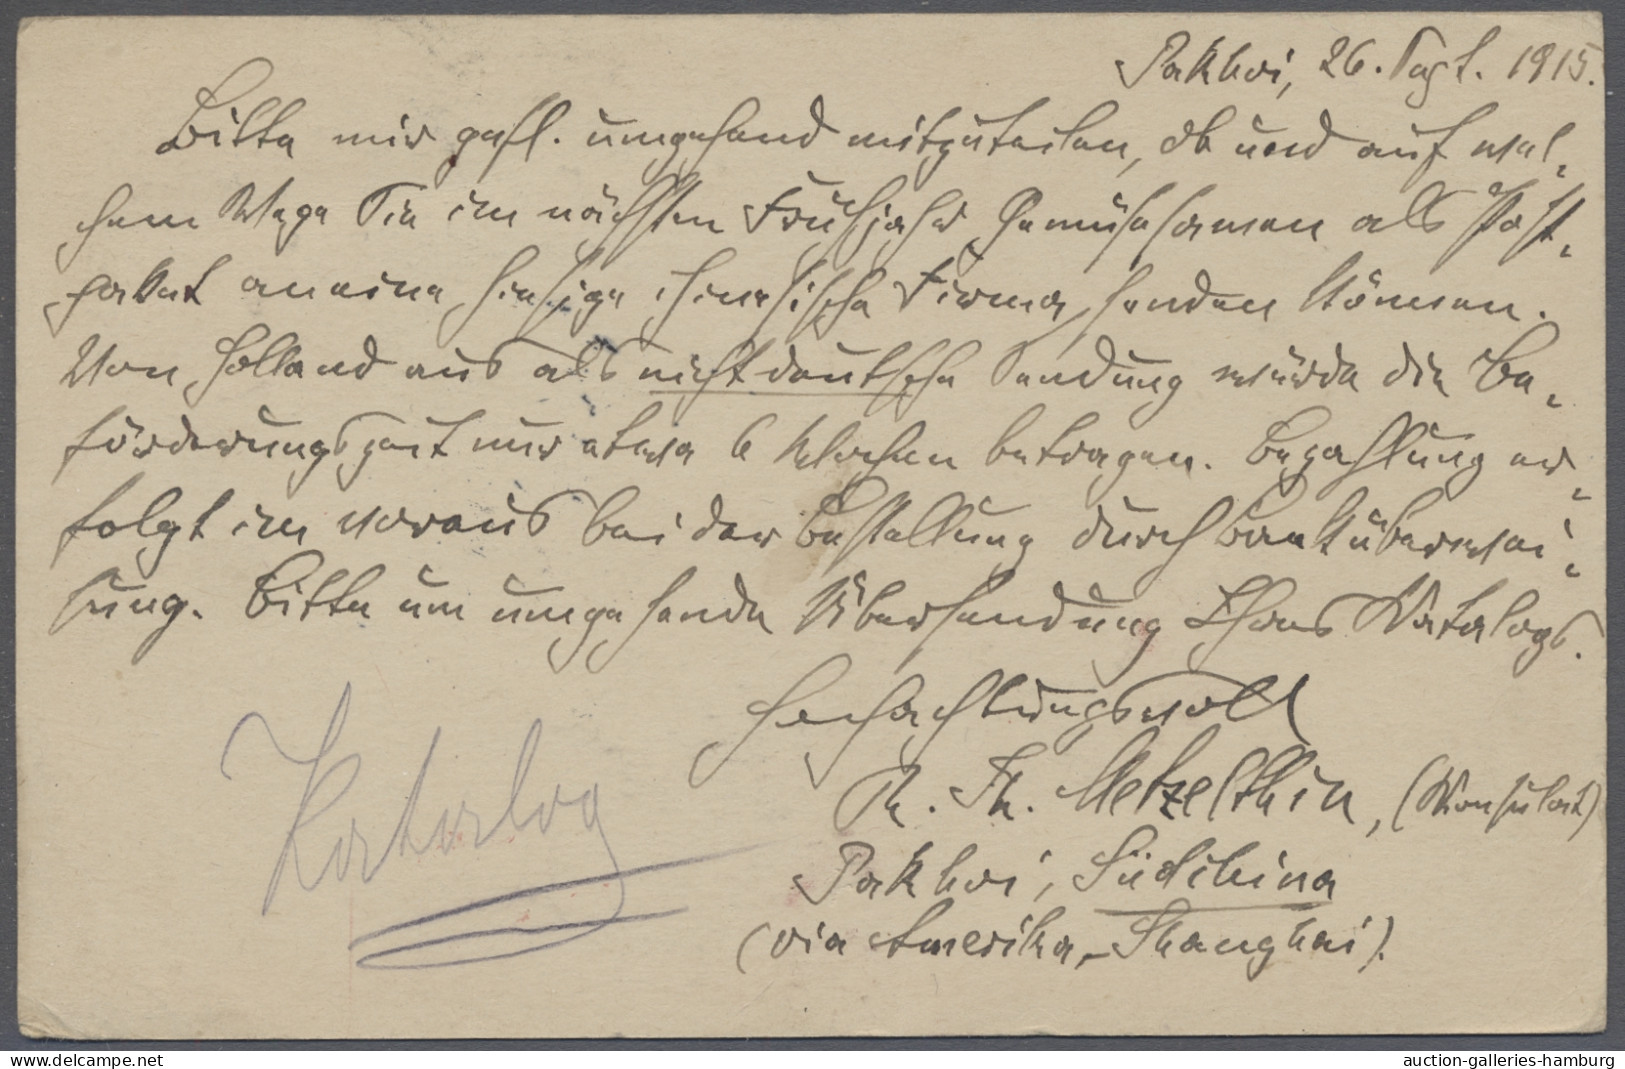 Pakhoi, 26. Sept. 1915.
Bitte mir gefl. umgehend mitzuteilen, ob und auf wel-
chem Wege Sie im nächsten Frühjahr Gemüsesamen als Post-
paket an eine hiesige chinesische Firma senden können.
Von Holland aus als nichtdeutsche Sendung würde die Be-
förderungszeit nur etwa 6 Wochen betragen. Bezahlung er-
folgt im voraus bei der Bestellung durch Banküberwei-
sung. Bitte um umgehende Übersendung Ihres Katalogs.
Hochachtungsvoll
Th. Metzelthin, (Konsulat)
Pakhoi, Südchina
(via Amerika-Shanghai).
Katalog
www.delcampe.net
auction-galleries-hamburg